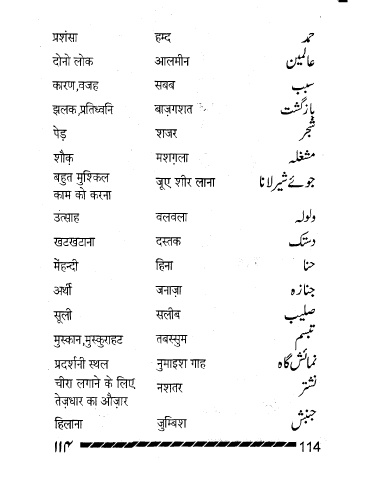 प्रशंसा हम्द حمد
दोनो लोक आलमीन عالمین
कारण,वजह सबब سبب
झलक,प्रतिध्वनि बाज़गशत بازگشت
पेड़ शजर شجر
शौक़ मशग़ला مشغلہ
बहुत मुश्किल
काम को करना जूए शीर लाना جوئے شیر لانا
उत्साह वलवला ولولہ
खटखटाना दस्तक دستک
मेंहन्दी हिना حنا
अर्थी जनाज़ा جنازہ
सूली सलीब صلیب
मुस्कान,मुस्कुराहट तबस्सुम تبسم
प्रदर्शनी स्थल नुमाइश गाह نمائش گاہ
चीरा लगाने के लिए
तेज़धार का औज़ार नशतर نشتر
हिलाना जुम्बिश جنبش
۱۱۴ 114